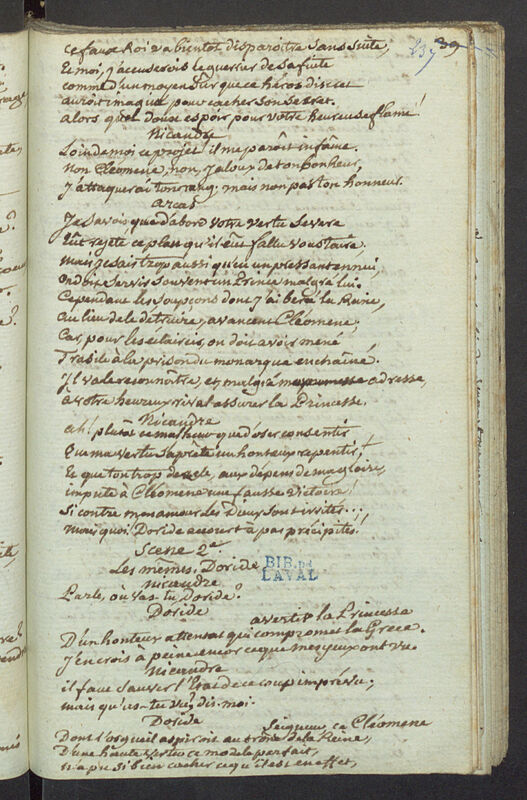 237 39
ce faux Roi va bientot disparoitre sans suite,
Et moi, j'accuserois le guerrier de sa fuite
comme d'un moyen sûr que ce héros discret
auroit imaginé pour cacher son secret.
alors quel doux espoir pour votre heureuse flame!
Nicandre
Loin de moi ce projet! il me paroît infâme.
Non Cléomene, non, jaloux de ton bonheur,
J'attaquerai ton rang, mais non pas ton honneur.
arcas
Je savois que d'abord votre vertu severe
Eût rejeté ce plan qu'il eût fallu vous taire,
mais je sais trop aussi qu'en un pressant ennui
On doit servir souvent un Prince malgré lui.
Cependant les soupçons dont j'ai bercé la Reine,
au lieu de le détruire, avancent Cléomene;
Car, pour les éclaircir, on doit avoir mené
Trasile à la prison du monarque enchaîné.
Il va le reconnôitre, et malgré mon adresse,
a votre heureux rival assurer la Princesse.
Nicandre
ah! plutôt ce malheur que d'oser consentir
Que ma vertu s'aprête un honteux repentir,
Et que ton trop de zele, aux dépens de ma gloire,
impute à Cléomene une fausse victoire!
Si contre mon amour les Dieux sont irrités...
mais quoi! Doride accourt à pas précipités!
Scene 2e.
Les mêmes, Doride
BIB. DE LAVAL
Nicandre
Parle, où vas-tu Doride?
Doride
avertir la Princesse
D'un honteux attentat qui compromet la Grece.
J'en crois à peine encor ce que mes yeux ont vu.
Nicandre
il faut sauver l'Etat de ce coup imprévu;
mais qu'as-tu vu, dis-moi.
Doride
Seigneur ce Cléomene
Dont l'orgueil aspiroit au trône de la Reine,
D'une haute vertu ce modele parfait,
n'a pu si bien cacher ce qu'il est en effet,